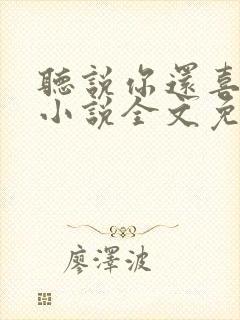 聽說你還喜
小說全文免
廖澤波